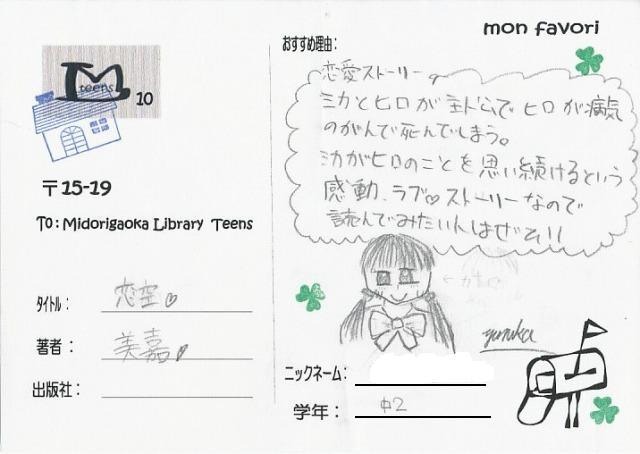 mon favori
teens
10
〒15-19
To: Midorigaoka Library Teens
タイトル: 恋空♡
著者: 美嘉
出版社:
おすすめ理由:
恋愛ストーリー。
ミカとヒロが主人公でヒロが病気
のがんで死んでしまう。
ミカがヒロのことを思い続けるという
感動、ラブ♡ストーリーなので
読んでみたい人はぜひ!!
yuuka
ニックネーム:
学年: 中2